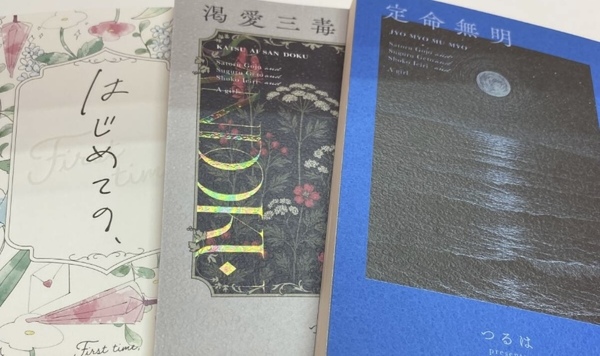 はじめての、
First time.
First time.
渇愛三毒
KATSU AI SAN DOKU
Satoru Gojo and
Suguru Geto and
Shoko Ieiri and
A girl
定命無明
JYO MYO MU MYO
Satoru Gojo and
Suguru Geto and
Shoko Ieiri and
A girl
つるは
present